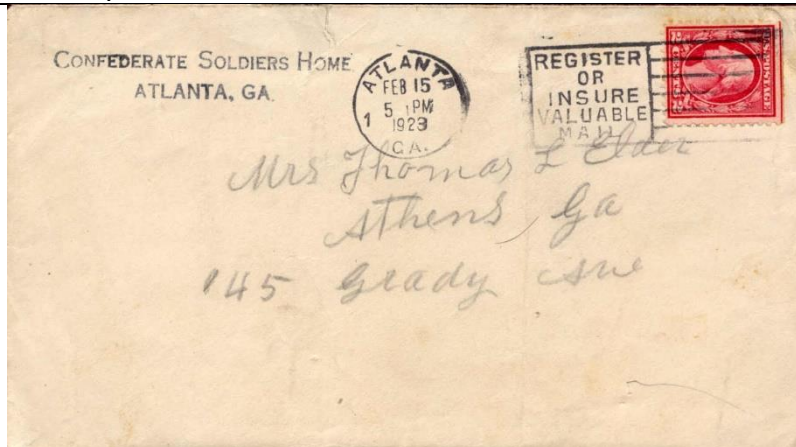 CONFEDERATE SOLDIERS HOME
ATLANTA, GA.
ATLANTA
FEB 15
5 PM
1
1923
GA.
REGISTER
OR
INSURE
VALUABLE
MAIL
U.S. POSTAGE
Mrs Thomas L Elder
Athens, Ga
145 Grady Ave